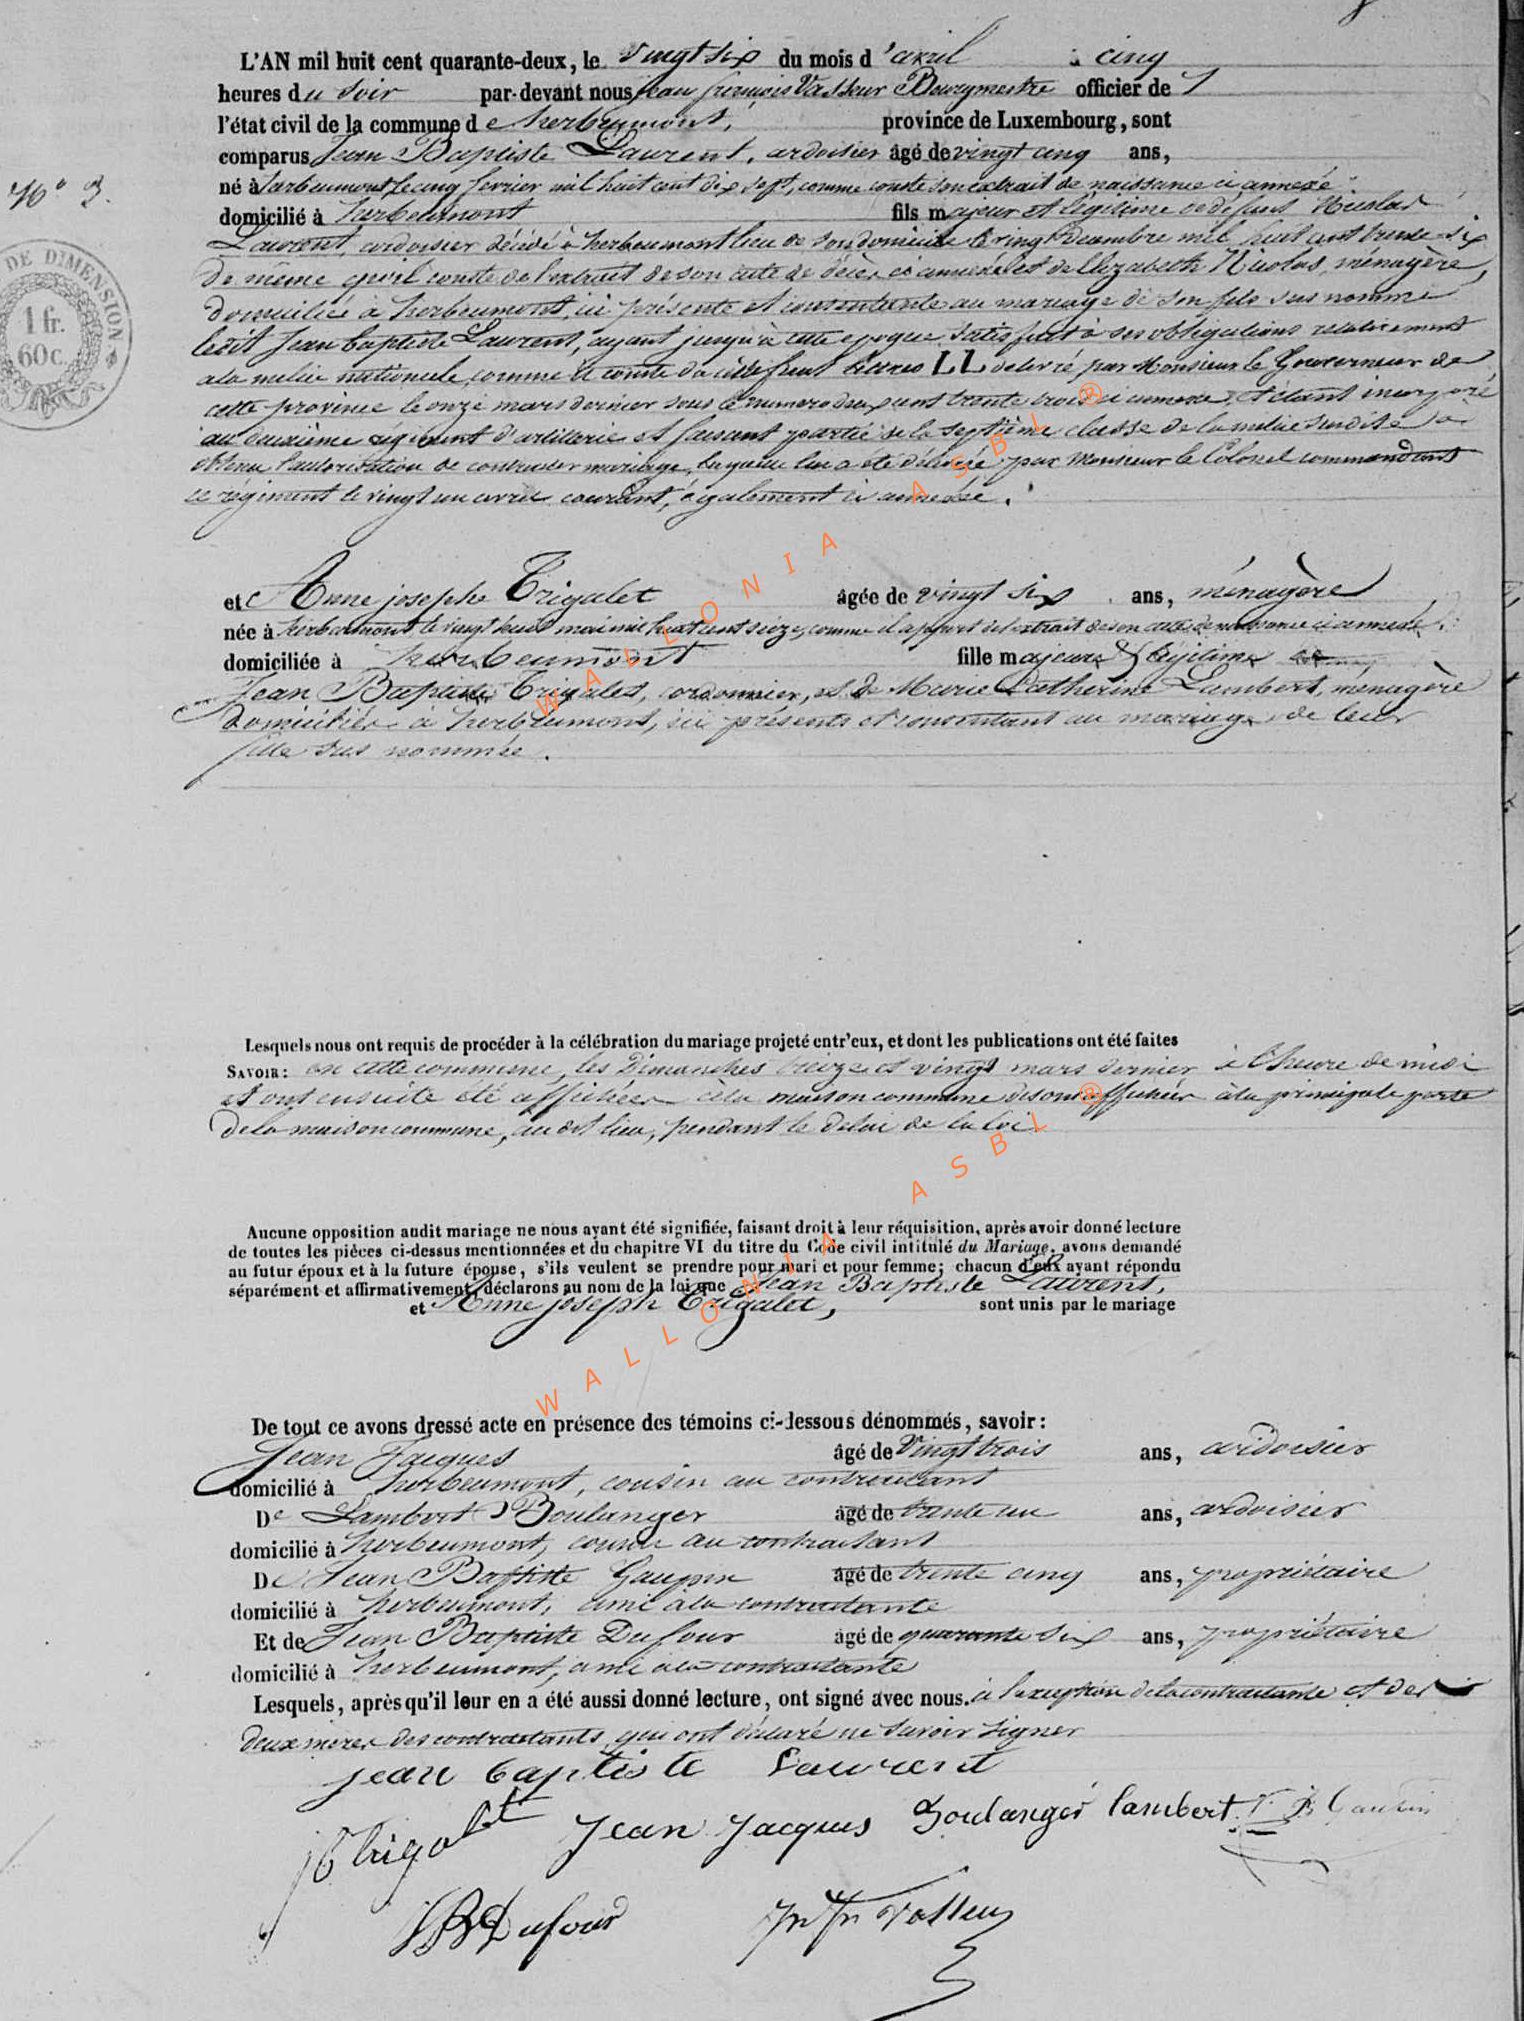 N° 3.
DE DIMENSION
1 fr.
60 c.
L'AN mil huit cent quarante-deux, le vingt six du mois d'avril à cinq
heures du soir par-devant nous jean françois Vasseur Bourgmestre officier de
l'état civil de la commune de herbeumont, province de Luxembourg, sont
comparus Jean Baptiste Laurent, ardoisier âgé de vingt cinq ans,
né à herbeumont le cinq fevrier mil huit cent dix sept, comme conste son extrait de naissance ci annexé
domicilié à herbeumont fils majeur et légitime de défunt Nicolas
Laurent, ardoisier décédé à herbeumont lieu de son domicile le vingt decembre mil huit cent trente six
de même qu'il conste de l'extrait de son acte de décès ci annexé et de Elizabeth Nicolas, ménagère,
domiciliée à herbeumont, ici présente et consentante au mariage de son fils sus nommé
ledit Jean baptiste Laurent, ayant jusqu'à cette epoque satisfait à ses obligations relativement
a la milice nationale, comme il conste du certificat lettres LL delivré par Monsieur le Gouverneur de
cette province le onze mars dernier sous le numero deux cent trente trois ci annexé, et étant incorporé
au deuxième régiment d'artillerie et faisant partie de la septième classe de la milice susdite a
obtenu l'autorisation de contracter mariage, laquelle lui a été délivrée par Monsieur le Colonel commandant
ce régiment le vingt un avril courant, également ci annexée.
et Anne josephe Trigalet âgée de vingt six ans, ménagère
née à herbeumont le vingt huit mai mil huit cent seize, comme il appert de l'extrait de son acte de naissance ci annexé.
domiciliée à herbeumont fille majeure & légitime de
Jean Baptiste Trigalet, cordonnier, et de Marie Catherine Lambert, ménagère
domiciliés à herbeumont, ici présents et consentant au mariage de leur
fille sus nommée.
Lesquels nous ont requis de procéder à la célébration du mariage projeté entr'eux, et dont les publications ont été faites
SAVOIR: en cette commune, les Dimanches treize et vingt mars dernier à l'heure de midi
et ont ensuite été affichées à la maison commune affichées à la principale porte
de la maison commune, au dit lieu, pendant le delai de la loi
Aucune opposition audit mariage ne nous ayant été signifiée, faisant droit à leur réquisition, après avoir donné lecture
de toutes les pièces ci-dessus mentionnées et du chapitre VI du titre du Code civil intitulé du Mariage, avons demandé
au futur époux et à la future épouse, s'ils veulent se prendre pour mari et pour femme; chacun d'eux ayant répondu
séparément et affirmativement, déclarons au nom de la loi que Jean Baptiste Laurent,
et Anne joseph Trigalet, sont unis par le mariage
De tout ce avons dressé acte en présence des témoins ci-dessous dénommés, savoir:
Jean Jacques âgé de Vingt trois ans, ardoisier
domicilié à herbeumont, cousin au contractant
De Lambert Boulanger âgé de trente un ans, ardoisier
domicilié à herbeumont, cousin au contractant
De Jean Baptiste Gaupin âgé de trente cinq ans, propriétaire
domicilié à herbeumont, ami à la contractante
Et de Jean Baptiste Dufour âgé de quarante six ans, propriétaire
domicilié à herbeumont, ami à la contractante
Lesquels, après qu'il leur en a été aussi donné lecture, ont signé avec nous. à l'exception de la contractante et des
deux meres des contractants, qui ont déclaré ne savoir signer
jean baptiste Laurent
jb trigalet Jean Jacques Boulanger lambert J B Gaupin
JB Dufour Jn fn Vasseur
WALLONIA ASBL ®
WALLONIA ASBL ®